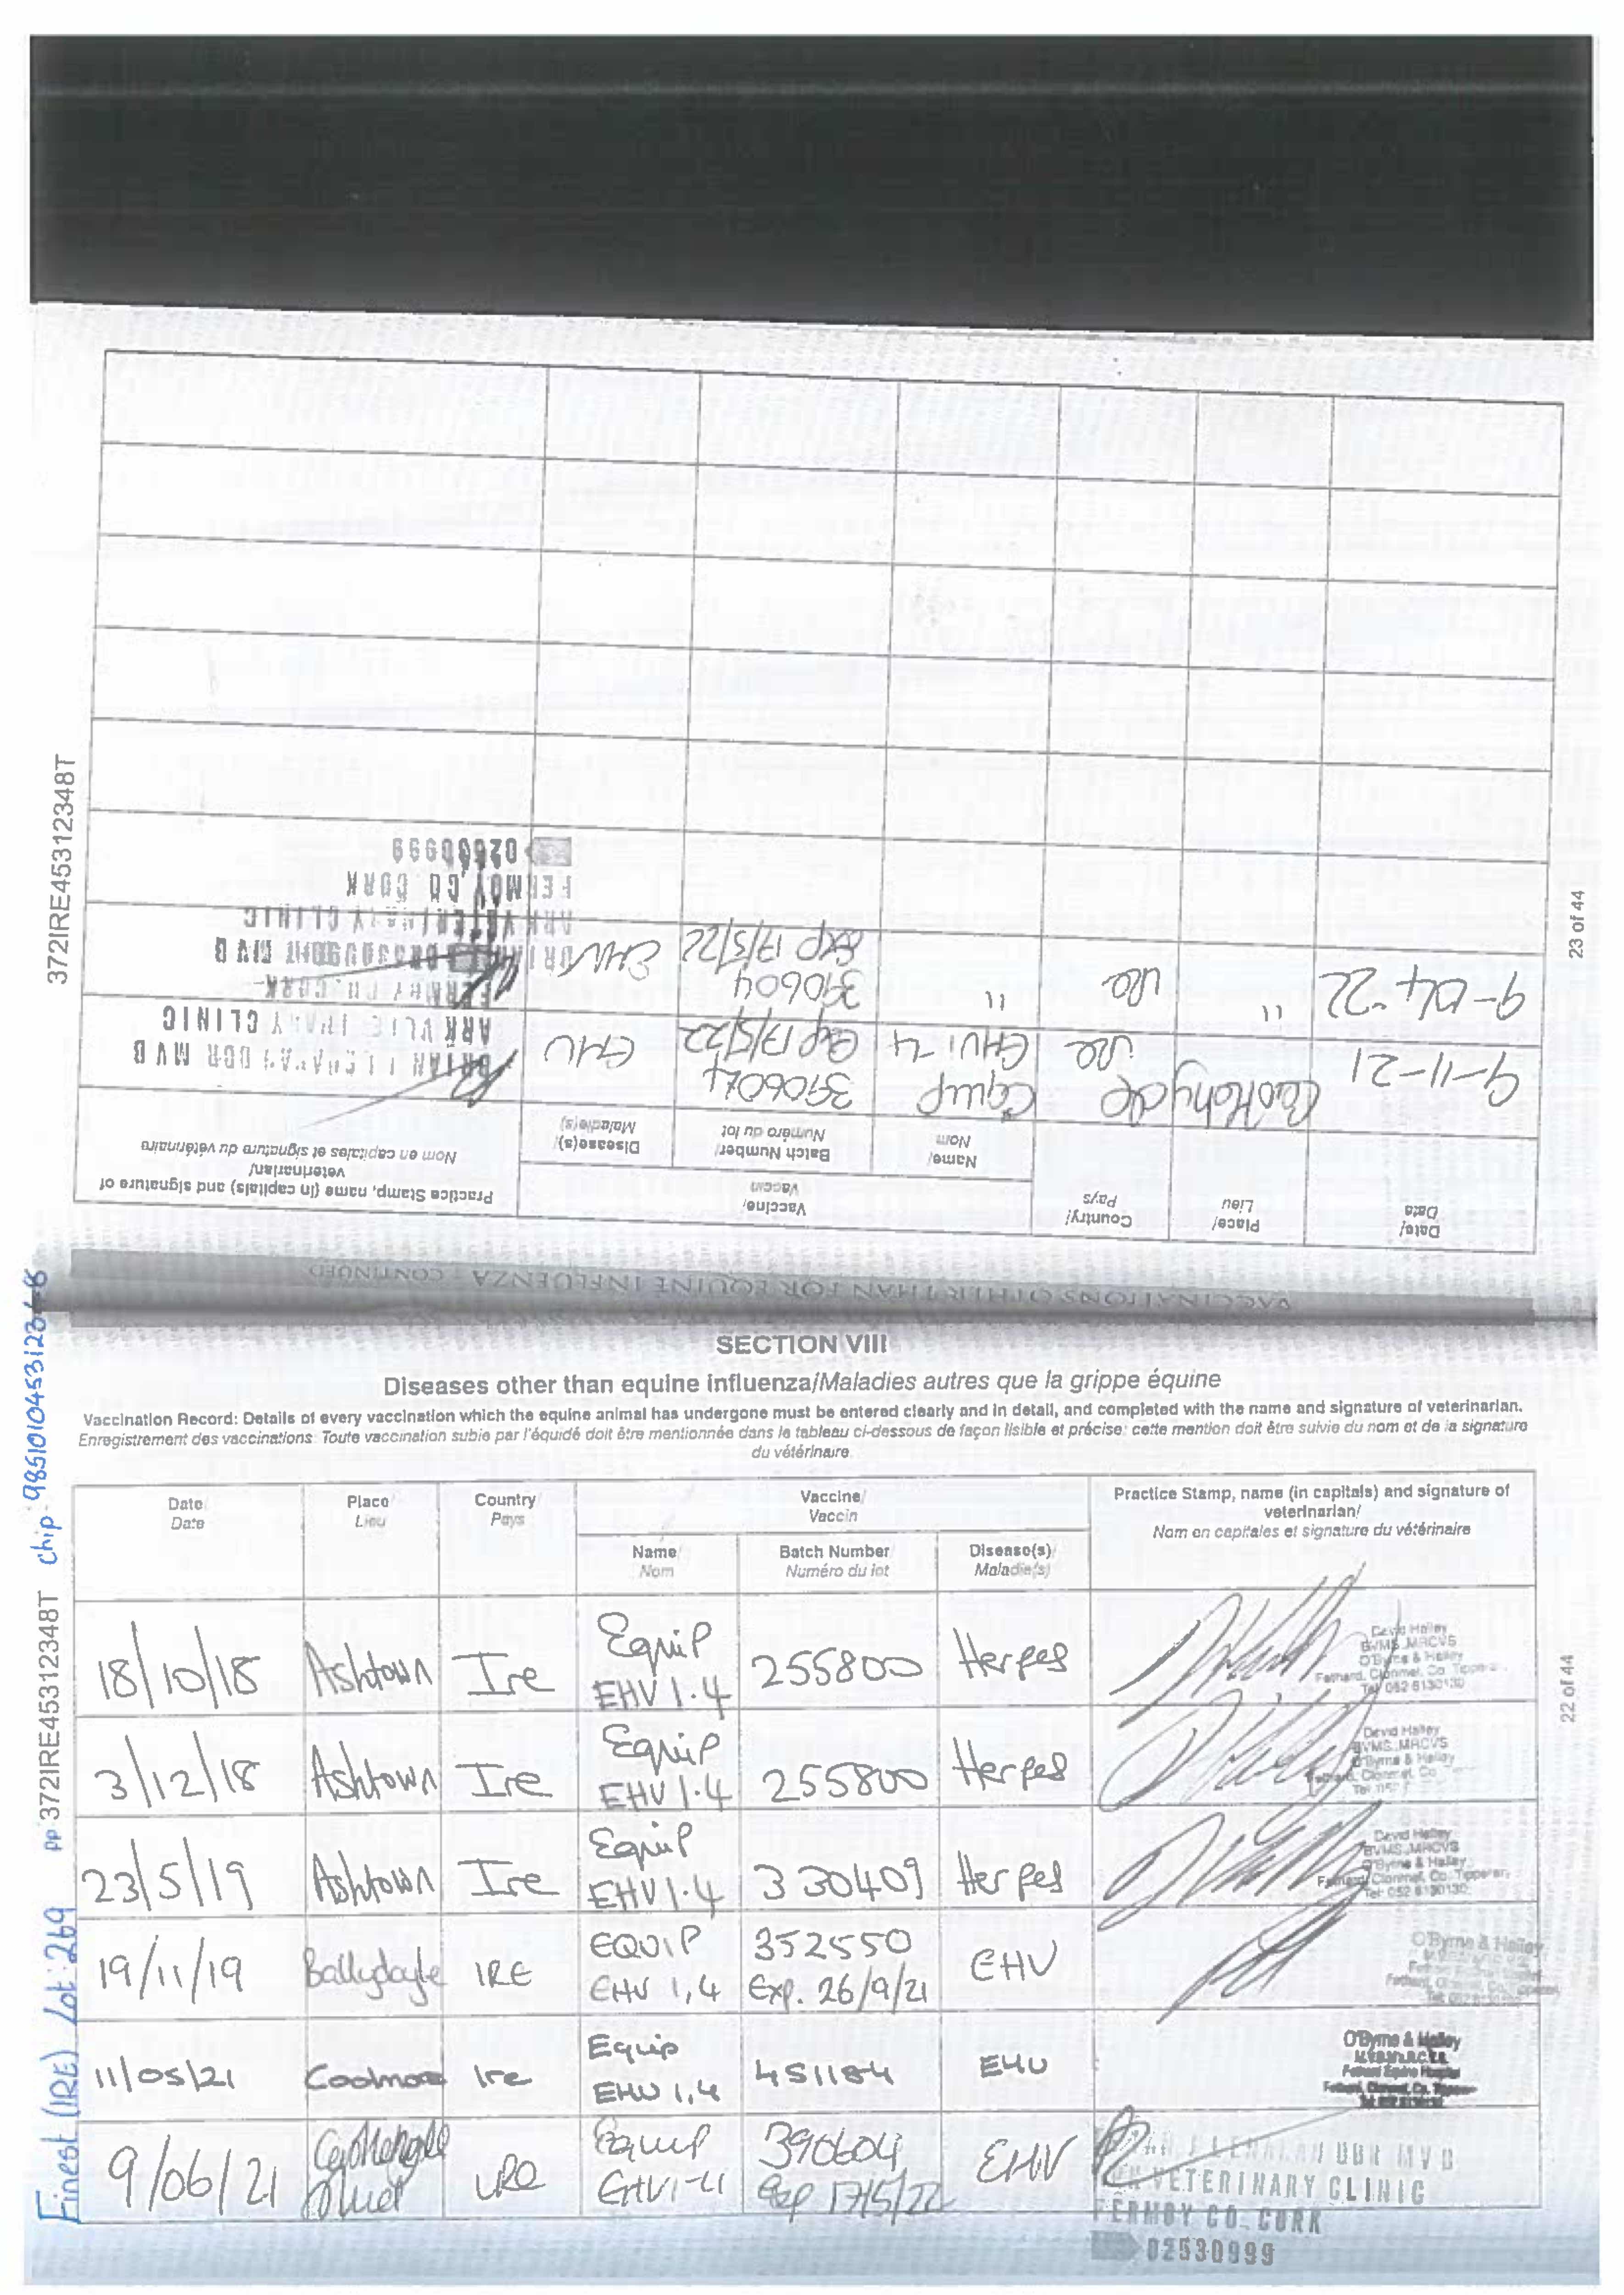 VACCINATIONS OTHER THAN FOR EQUINE INFLUENZA - CONTINUED
Date/ Date
Place/ Lieu
Country/ Pays
Vaccine/ Vaccin
Name/ Nom
Batch Number/ Numéro du lot
Disease(s)/ Maladie(s)
Practice Stamp, name (in capitals) and signature of
veterinarian/
Nom en capitales et signature du vétérinaire
9-11-21 Castlehyde Ire Equip EHV1-4 390604 Exp 17/5/22 EHV
ARK VETERINARY CLINIC
9-04-22 " Ire " 390604 exp 17/5/22 EHV
ARK VETERINARY CLINIC
FERMOY CO CORK
372IRE45312348T
23 of 44
SECTION VIII
Diseases other than equine influenza/Maladies autres que la grippe équine
Vaccination Record: Details of every vaccination which the equine animal has undergone must be entered clearly and in detail, and completed with the name and signature of veterinarian.
Enregistrement des vaccinations: Toute vaccination subie par l'équidé doit être mentionnée dans le tableau ci-dessous de façon lisible et précise: cette mention doit être suivie du nom et de la signature
du vétérinaire.
Date/ Date
Place/ Lieu
Country/ Pays
Vaccine/ Vaccin
Name/ Nom
Batch Number/ Numéro du lot
Disease(s)/ Maladie(s)
Practice Stamp, name (in capitals) and signature of
veterinarian/
Nom en capitales et signature du vétérinaire
18/10/18 Ashtown Ire Equip EHV 1.4 255800 Herpes
David Halley
BVMS MRCVS
O'Byrne & Halley
Fethard, Clonmel, Co. Tipperary
Tel: 052 6130130
3/12/18 Ashtown Ire Equip EHV 1.4 255800 Herpes
David Halley
BVMS MRCVS
O'Byrne & Halley
Fethard, Clonmel, Co
23/5/19 Ashtown Ire Equip EHV 1.4 330409 Herpes
David Halley
BVMS MRCVS
O'Byrne & Halley
Fethard, Clonmel, Co. Tipperary
Tel: 052 6130130
19/11/19 Ballydoyle IRE EQUIP EHV 1,4 352550 Exp. 26/9/21 EHV
O'Byrne & Halley
11/05/21 Coolmore Ire Equip EHV 1,4 451184 EHV
O'Byrne & Halley
Fethard Equine Hospital
Fethard, Clonmel, Co.
9/06/21 Castlehyde Ire Equip EHV1-4 390604 Exp 17/5/22 EHV
VETERINARY CLINIC
FERMOY CO. CORK
02530999
Finest (IRE) Lot: 269 pp 372IRE45312348T chip: 985101045312348
22 of 44